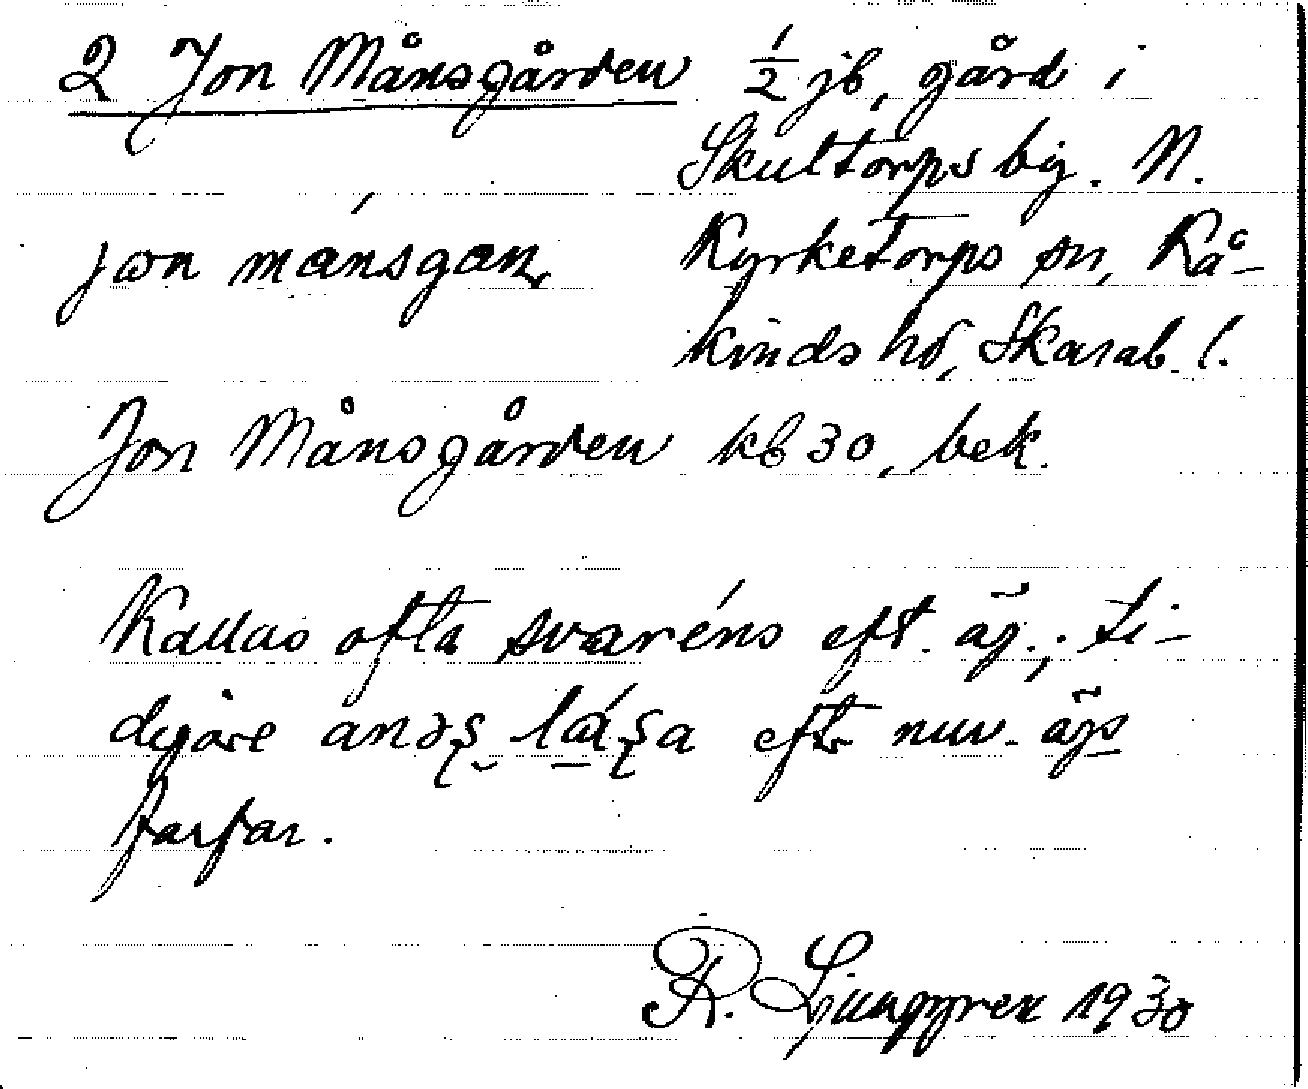 2 Jon Månsgården ½ jb, gård i
Skultorps by. N.
jɷn mánsgaɳ Kyrketorps sn, Kå-
kinds hd, Skarab. l.
Jon Månsgården kb 30, bek.
Kallas ofta svaréns eft. äg.; ti-
digare anəʂ láʂa eft nuv. äg:s
farfar.
R. Ljunggren 1930